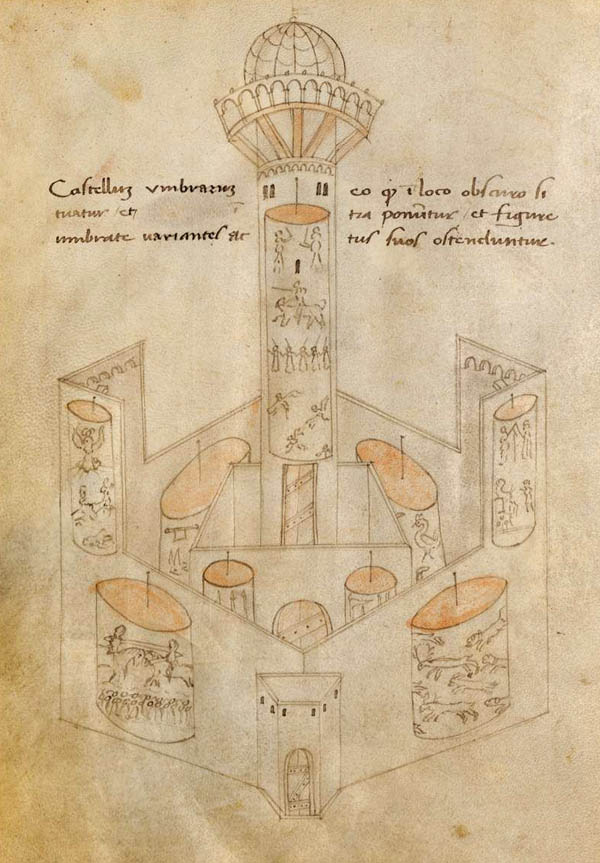 Castelluʒ vmbraruʒ eo qꝫ ī loco obscuro si
tuatur et ī tra ponūtur et figure
umbrate uariantes ac tus suos ostenduntur.